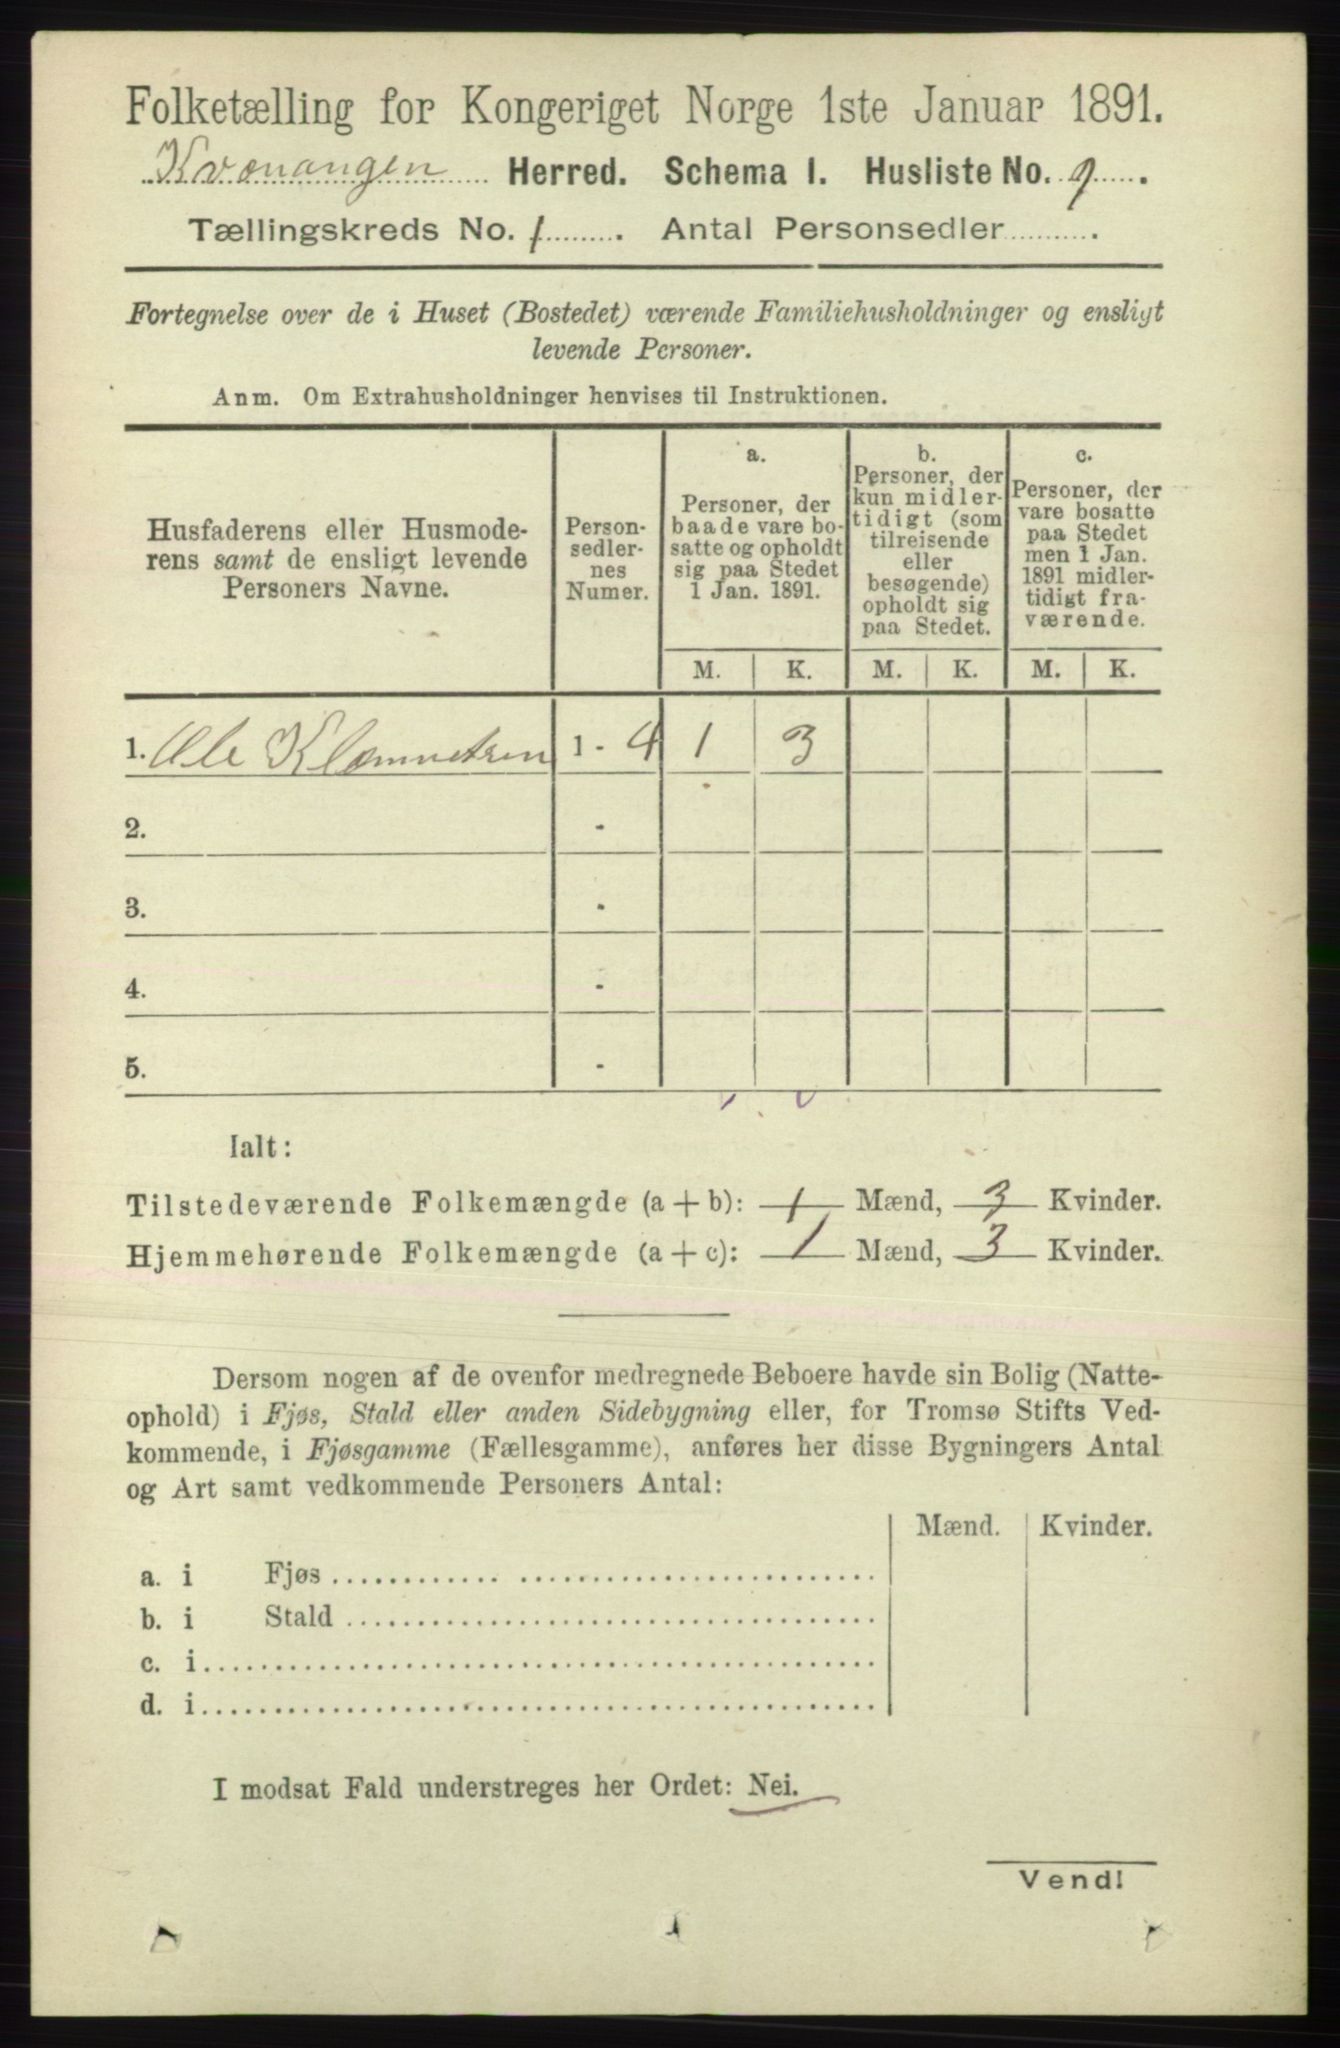 Folketælling for Kongeriget Norge 1ste Januar 1891.
Kvænangen Herred. Schema I. Husliste No. 9.
Tællingskreds No. 1. Antal Personsedler.
Fortegnelse over de i Huset (Bostedet) værende Familiehusholdninger og ensligt
levende Personer.
Anm. Om Extrahusholdninger henvises til Instruktionen.
Husfaderens eller Husmoderens samt de ensligt levende Personers Navne.
Personsedlernes Numer.
a.
Personer, der
baade vare bo-
satte og opholdt
sig paa Stedet
1 Jan. 1891.
b.
Personer, der
kun midler-
tidigt (som
tilreisende
eller
besøgende)
opholdt sig
paa Stedet.
c.
Personer, der
vare bosatte
paa Stedet
men 1 Jan.
1891 midler-
tidigt fra-
værende.
M. K. M. K. M. K.
1. Ole Klemmetsen 1 - 4 1 3
2. -
3. -
4. -
5. -
Ialt:
Tilstedeværende Folkemængde (a + b): 1 Mænd, 3 Kvinder.
Hjemmehørende Folkemængde (a + c): 1 Mænd, 3 Kvinder.
Dersom nogen af de ovenfor medregnede Beboere havde sin Bolig (Natte-
ophold) i Fjøs, Stald eller anden Sidebygning eller, for Tromsø Stifts Ved-
kommende, i Fjøsgamme (Fællesgamme), anføres her disse Bygningers Antal
og Art samt vedkommende Personers Antal:
Mænd. Kvinder.
a. i Fjøs
b. i Stald
c. i
d. i
I modsat Fald understreges her Ordet: Nei.
Vend!